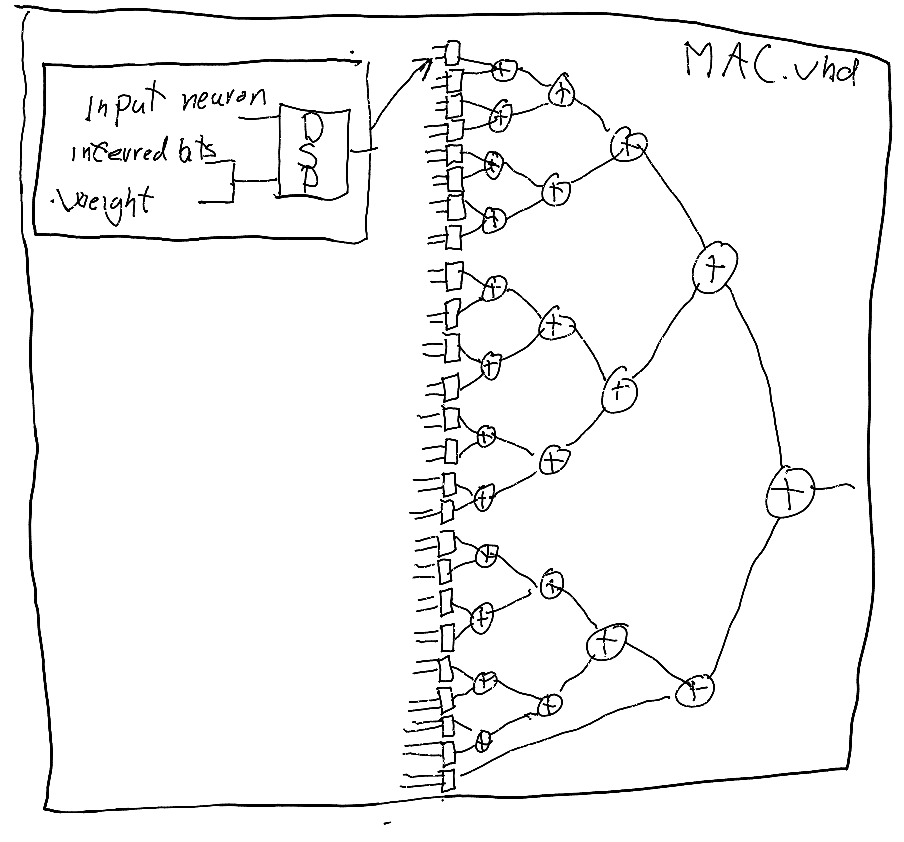 MAC.vhd
Input neuron
inferred bits
Weight
DSP